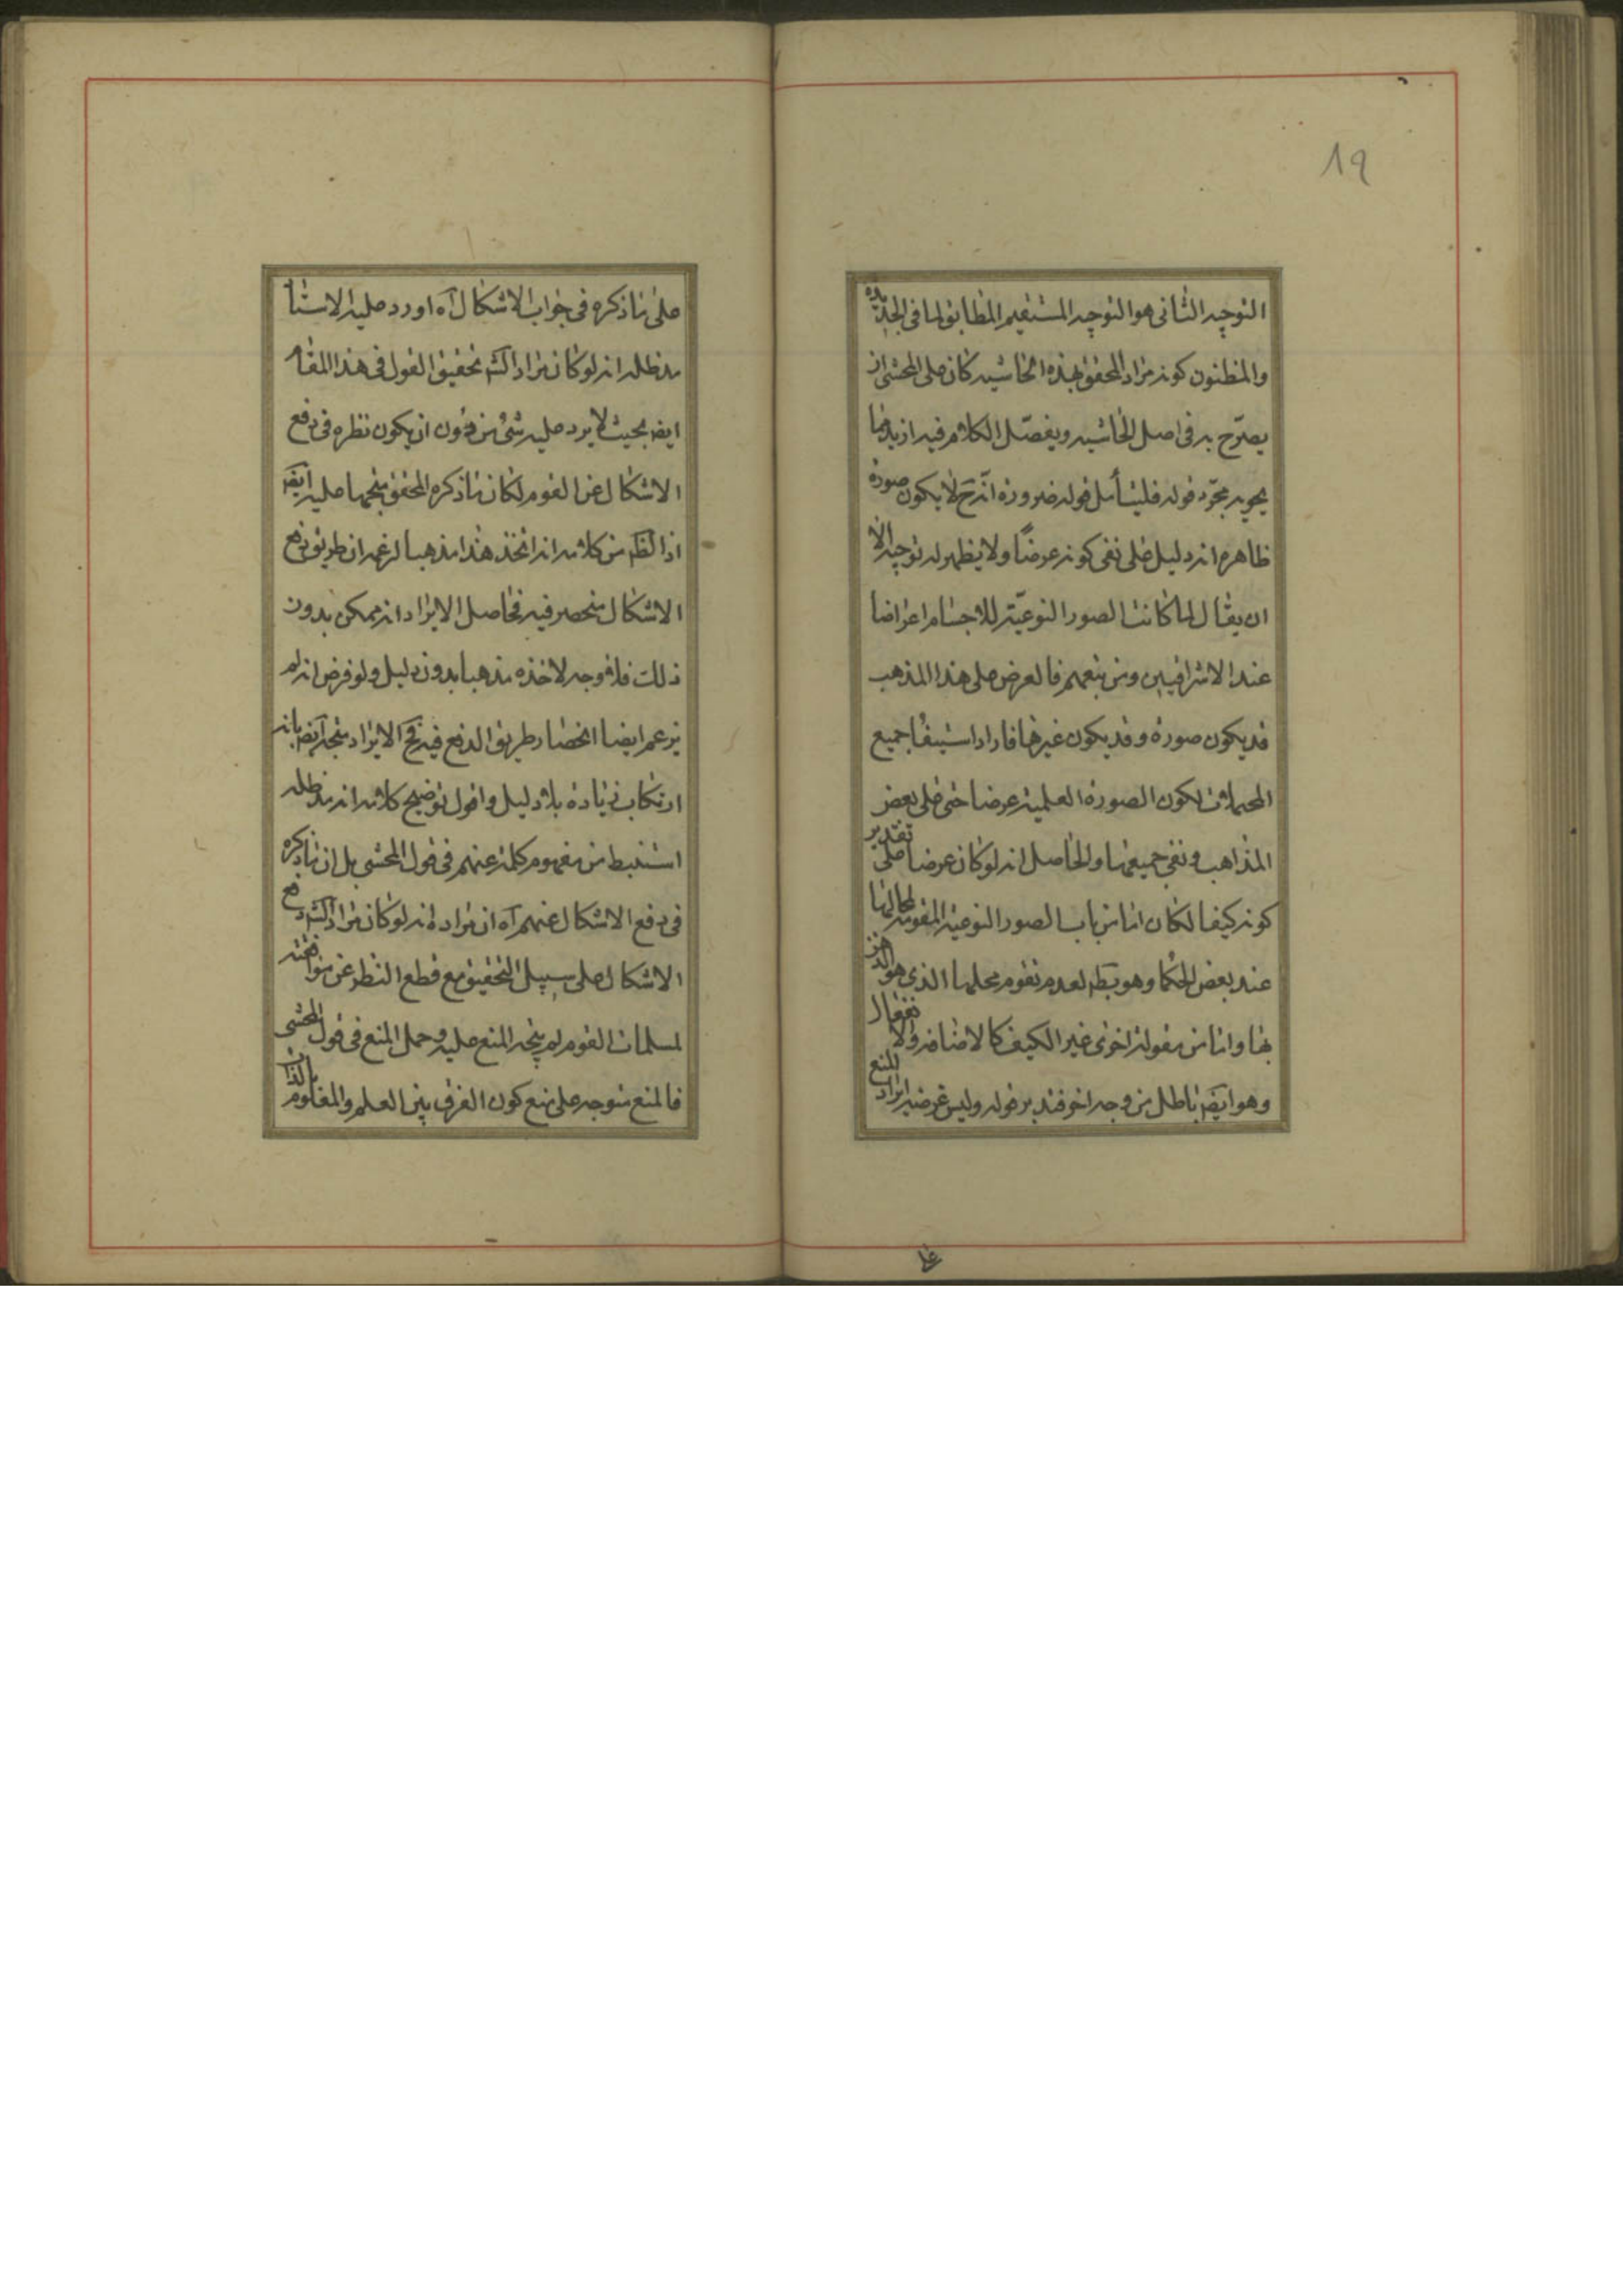 19
التوجيه الثانى هو التوجيه المستقيم المطابق لما فى الجديدة
والمظنون كونه مراد المحقق بهذه الحاشيه كان على المحشى ان
يصرّح به فى اصل الحاشيه ويفصّل الكلام فيه ازيد مما
بمجرّد قوله فليتأمل قوله ضرورة انّه ح لا يكون صورة
ظاهره انه دليل على نفى كونه عرضًا ولا يظهر له توجيه الا
ان يقال لما كانت الصور النوعيّة للاجسام اعراضا
عند الاشراقيين ومن تبعهم فالعرض على هذا المذهب
قد يكون صورة وقد يكون غيرها فاراد استيفاء جميع
المحملات لكون الصورة العلمية عرضا حتى على بعض
المذاهب ونفى جميعها والحاصل انه لو كان عرضا على تقدير
كونه كيفا لكان اما من باب الصور النوعية المقومة لمحالها
عند بعض الحكما وهو بط لعدم تقوم محلها الذى هو الذهن
بها واما من مقولة اخرى غير الكيف كالاضافه والانفعال
وهو ايضا باطل من وجه اخر فتدبر قوله وليس غرضه ايراد المنع
على ما ذكره فى جواب الاشكال آه اورد عليه الاستا
مد ظله انه لو كان مراد الش تحقيق القول فى هذا المقام
ايض بحيث لا يرد عليه شئ من دون ان يكون نظره فى دفع
الاشكال عن القوم لكان ما ذكره المحقق متجها عليه ايض
اذ الظ من كلامه انه اتخذ هذا مذهبا لزعمه ان طريق دفع
الاشكال منحصر فيه فحاصل الايراد انه ممكن بدون
ذلك فلا وجه لاخذه مذهبا بدون دليل ولو فرض انه لم
يزعم ايضا انحصار طريق الدفع فيه فح الايراد متجه ايض بانه
ارتكاب زيادة بلا دليل واقول توضيح كلامه انه مد ظله
استنبط من مفهوم كلمة عنهم فى قول المحشى بل ان ما ذكره
فى دفع الاشكال عنهم آه ان مراده انه لو كان مراد الش دفع
الاشكال على سبيل التحقيق مع قطع النظر عن موافقته
لمسلمات القوم لم يتجه المنع عليه وحمل المنع فى قول المحشى
فالمنع متوجه على منع كون الفرق بين العلم والمعلوم بالذات